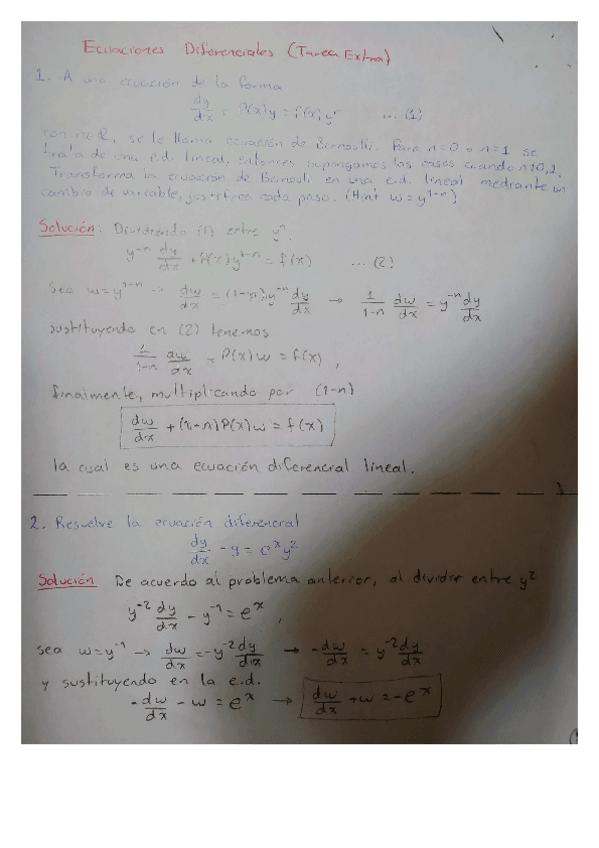 Ecuaciones Diferenciales (Tarea Extra)
1. A una ecuación de la forma
dy/dx + P(x)y = f(x)y^n ... (1)
con n∈R, se le llama ecuación de Bernoulli. Para n=0 o n=1 se
trata de una e.d. lineal, entonces supongamos los casos cuando n≠0,1.
Transforma la ecuación de Bernoulli en una e.d. lineal mediante un
cambio de variable, justifica cada paso. (Hint w=y^{1-n})
Solución: Dividiendo (1) entre y^n.
y^{-n} dy/dx + P(x)y^{1-n} = f(x) ... (2)
Sea w=y^{1-n} → dw/dx = (1-n)y^{-n} dy/dx → 1/(1-n) dw/dx = y^{-n} dy/dx
sustituyendo en (2) tenemos
1/(1-n) dw/dx + P(x)w = f(x),
finalmente, multiplicando por (1-n)
dw/dx + (1-n)P(x)w = f(x)
la cual es una ecuación diferencial lineal.
2. Resuelve la ecuación diferencial
dy/dx - y = e^x y^2
Solución De acuerdo al problema anterior, al dividir entre y^2
y^{-2} dy/dx - y^{-1} = e^x,
sea w=y^{-1} → dw/dx = -y^{-2} dy/dx → -dw/dx = y^{-2} dy/dx
y sustituyendo en la e.d.
-dw/dx - w = e^x → dw/dx + w = -e^x